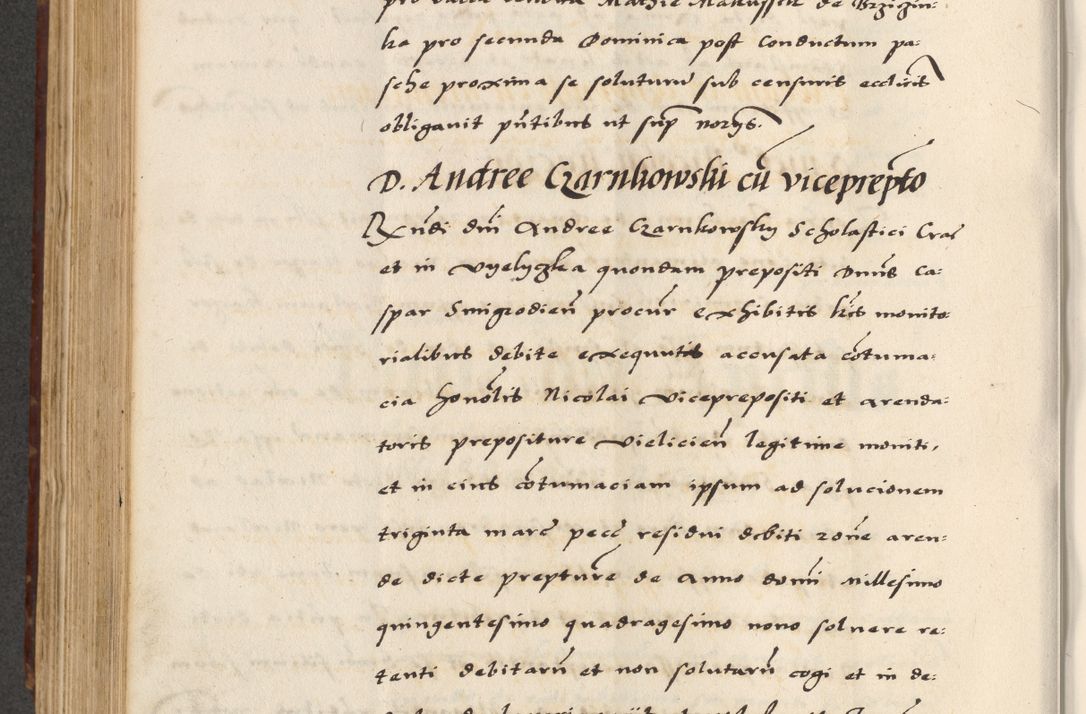 ka pro secunda Dominica post Conductum pa:
sche proxima se soluturū sub censuris ecclicis
obligavit pñtibus ut sup norys.
D. Andree Czarnkowski cū viceprepto
Rxñdi dñi Andree Czarnkowsky Scholastici Crac
et in Vyelyczka quondam prepositi Dnus Ca:
spar Smigrodieñ procur exhibitis lris monito:
rialibus debite exequutis accusata cõtuma:
cia honolis Nicolai Viceprepositi et arenda:
toris prepositure Vielicieñ legitime moniti,
et in eius cõtumaciam ipsum ad solucionem
triginta marc pece residui debiti rõne aren:
de dicte prepture de Anno domi Millesimo
quingentesimo quadragesimo nono solvere re:
tenti debitarū et non solutarū cogi et in de: